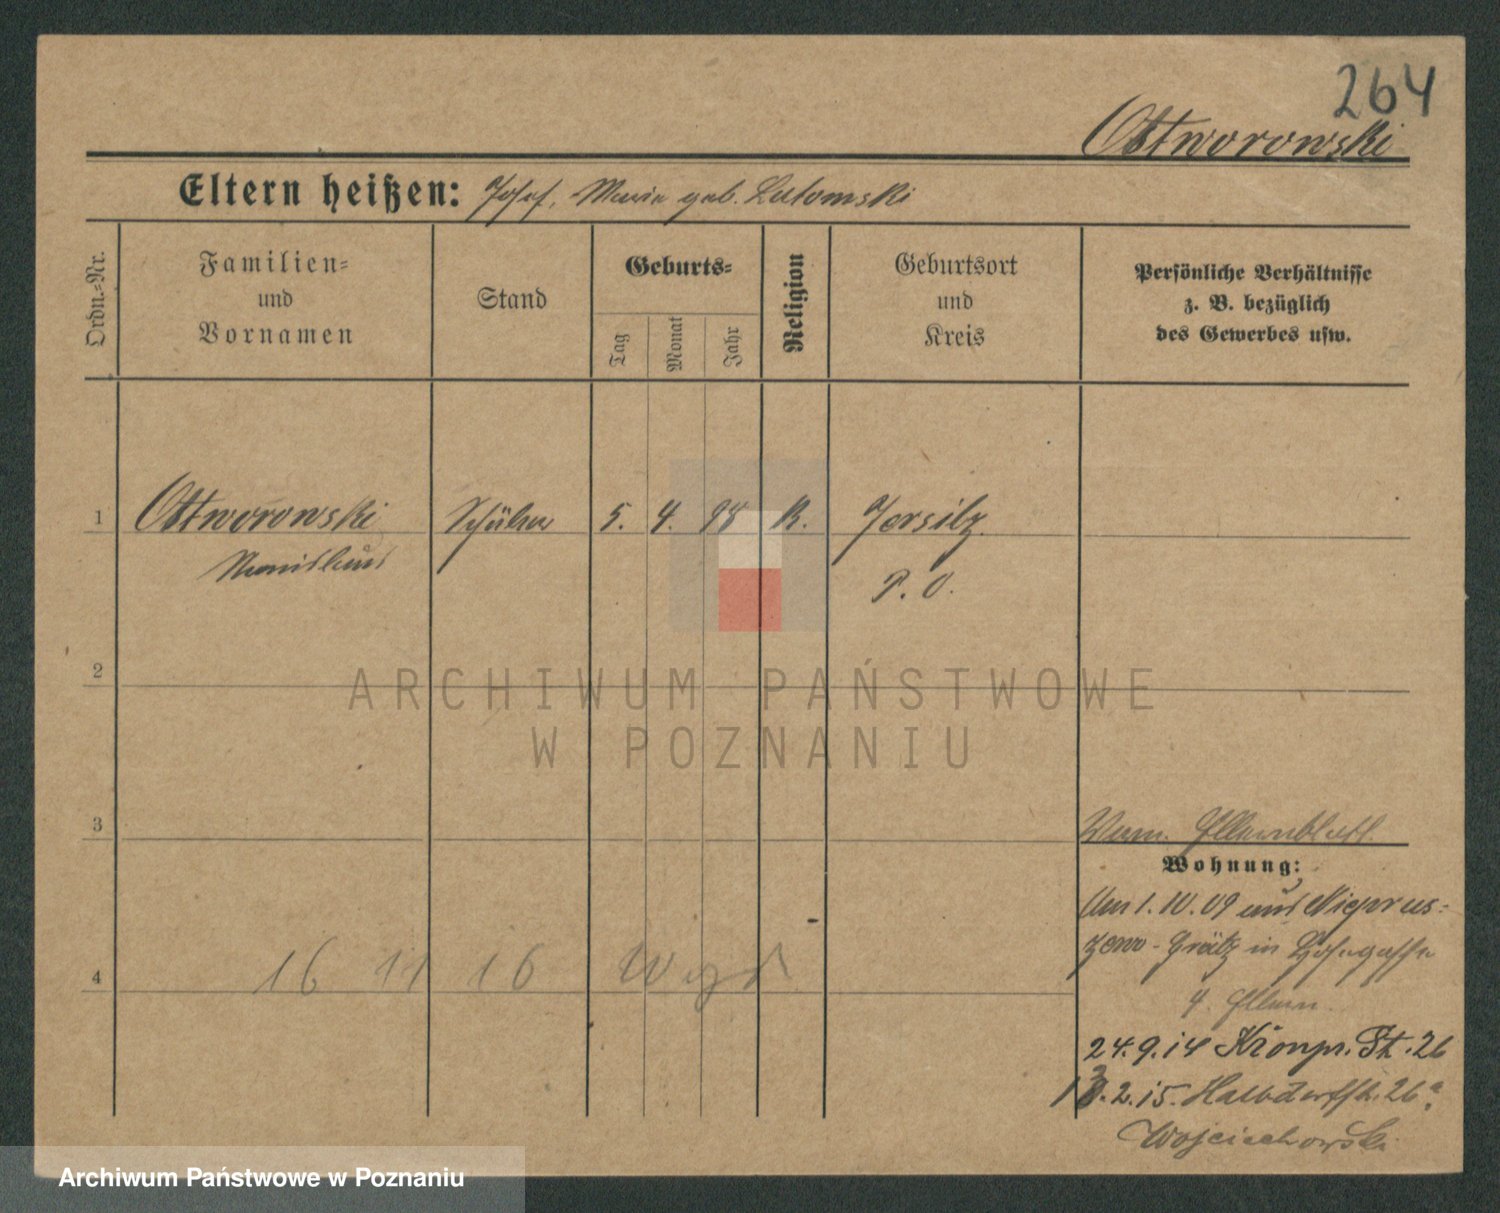 264
Ostworowski
Eltern heißen: Josef, Maria geb. Lutomski
Ordn.=Nr.
Familien=
und
Vornamen
Stand
Geburts=
Tag
Monat
Jahr
Religion
Geburtsort
und
Kreis
Persönliche Verhältnisse
z. B. bezüglich
des Gewerbes usw.
1 Ostworowski Schüler 5. 4. 98 K. Jersitz
P. O.
2
ARCHIWUM PAŃSTWOWE
W POZNANIU
3
Elternblatt
Wohnung:
Am 1.10.09 aus Nieprus=
zewo - Grätz in
z. Eltern.
4 16 11 16
24.9.14 Kronpr. St. 26
13.2.15. Halbdorfstr. 26a
Wojciechowski
Archiwum Państwowe w Poznaniu